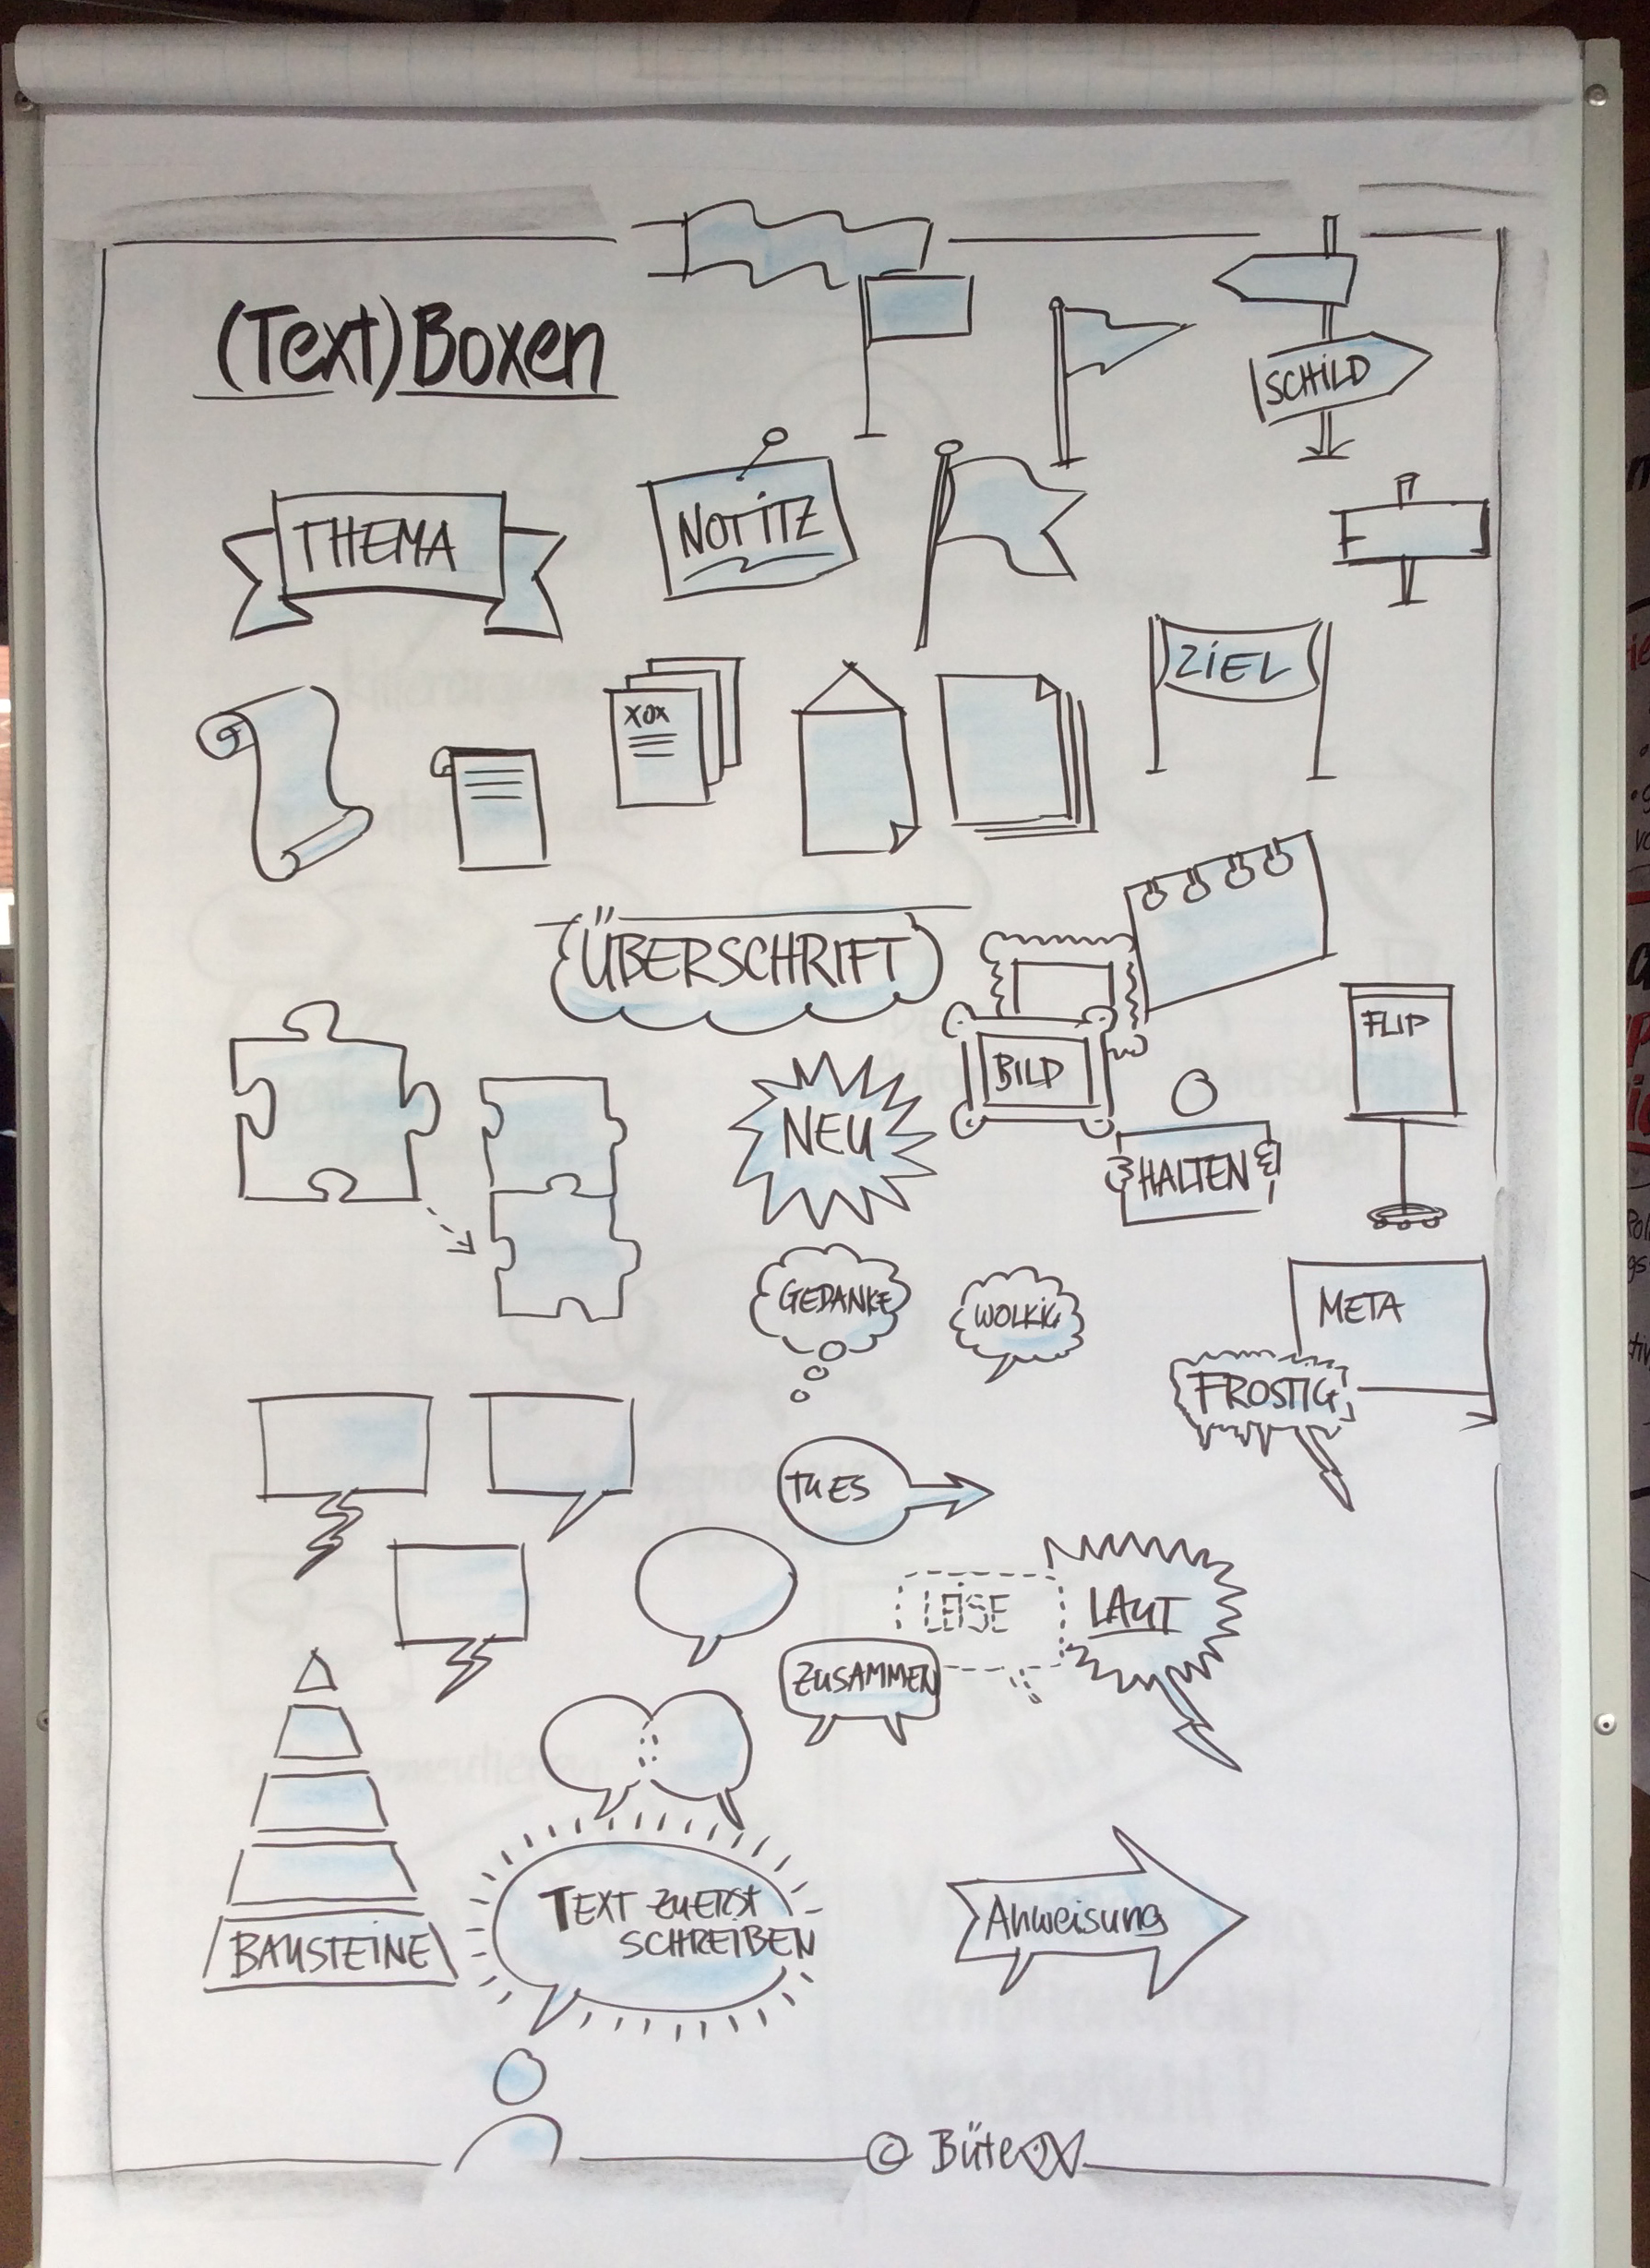 (Text)Boxen
SCHILD
THEMA
NOTITZ
ZIEL
XOX
ÜBERSCHRIFT
FLIP
BILD
NEU
HALTEN
GEDANKE
WOLKIG
META
FROSTIG
TU ES
LEISE
LAUT
ZUSAMMEN
TEXT ZUERST
SCHREIBEN
Anweisung
BAUSTEINE
© Büte